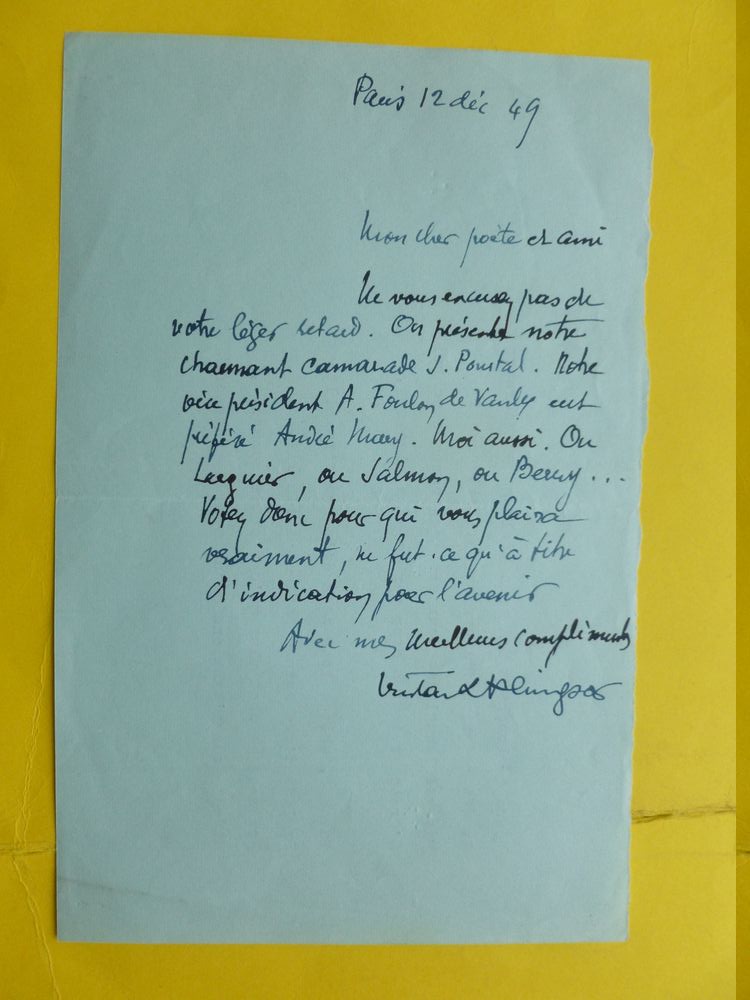 Paris 12 déc 49
Mon cher poète et ami
Ne vous excusez pas de
votre léger retard. On présente notre
charmant camarade J. Pourtal. Notre
vice président A. Foulon de Vaulx eut
préféré André Mary. Moi aussi. Ou
Larguier, ou Salmon, ou Berry...
Votez donc pour qui vous plaira
vraiment, ne fut-ce qu'à titre
d'indication pour l'avenir
Avec mes meilleurs compliments
Tristan Klingsor